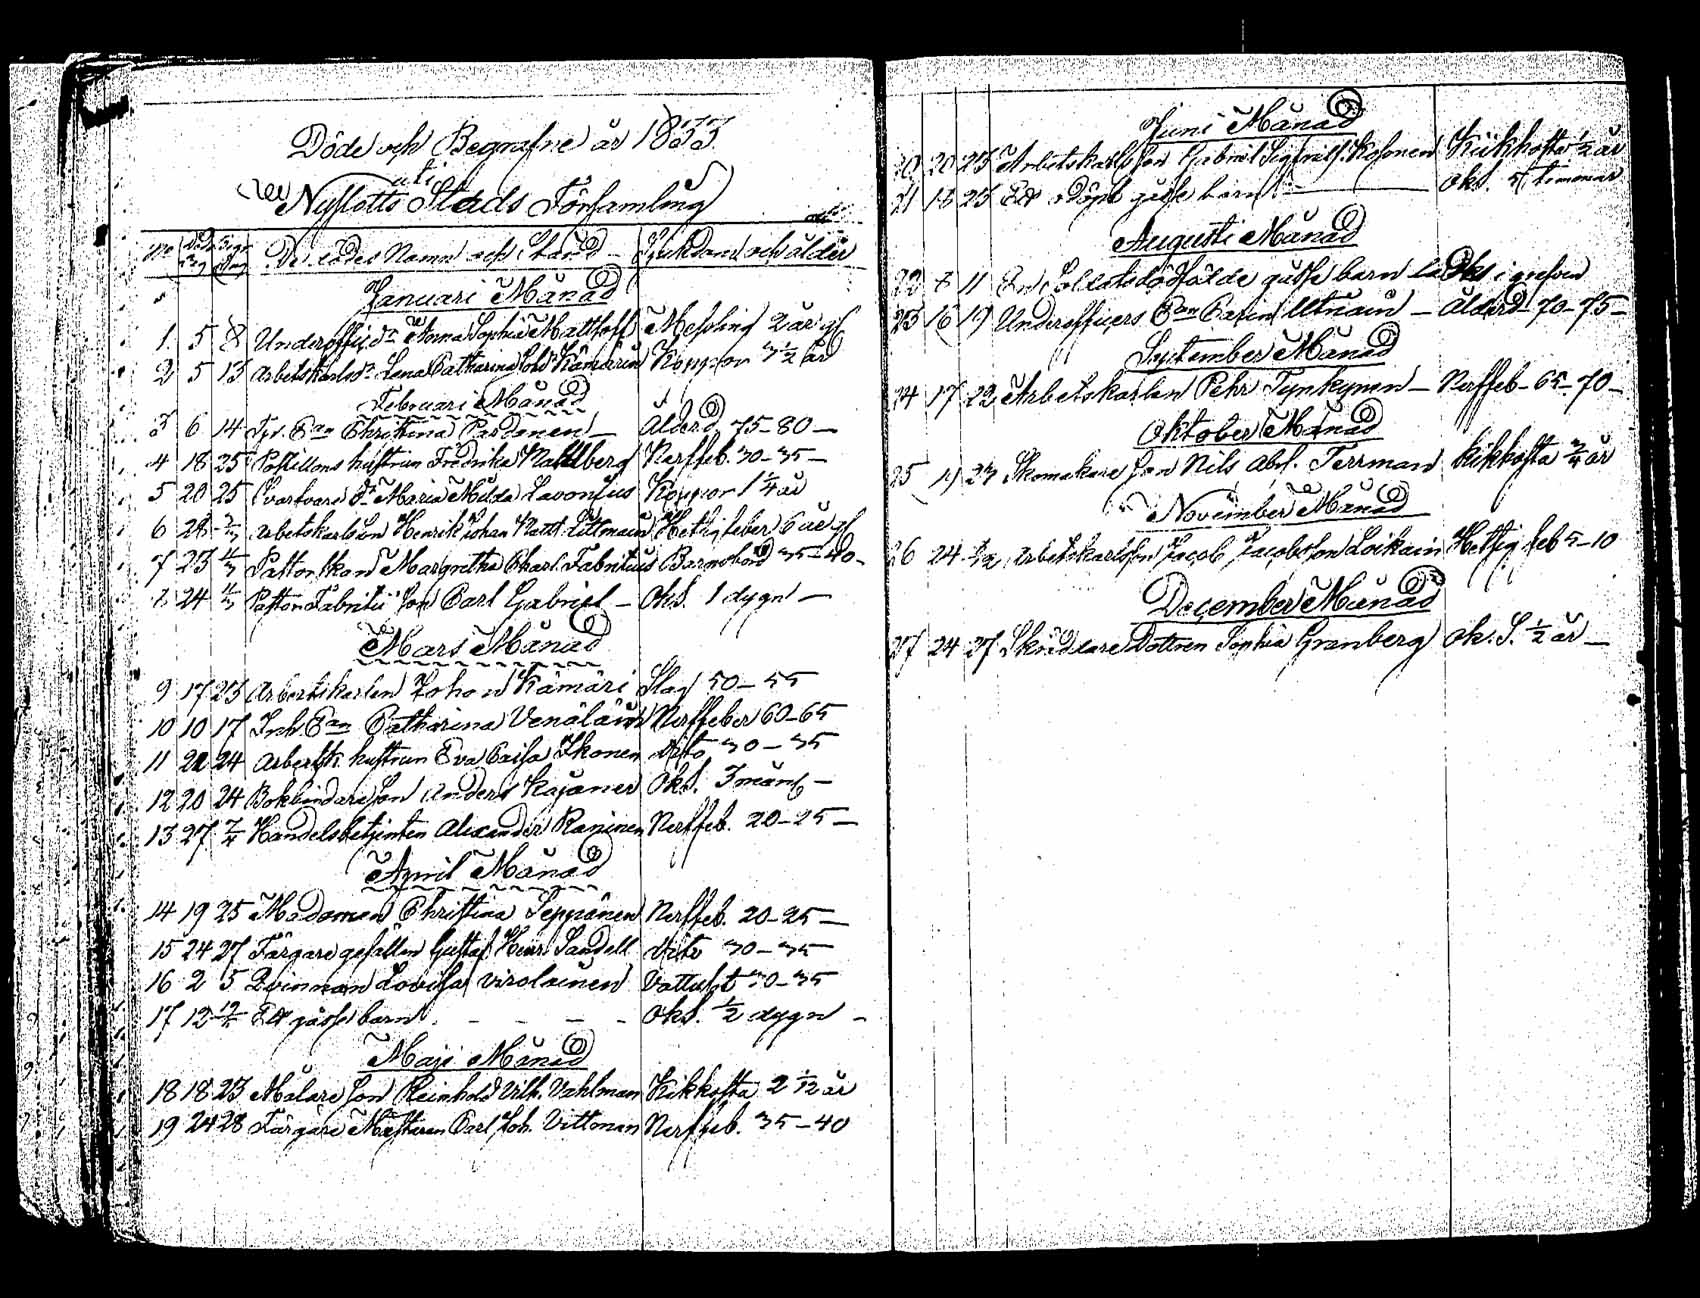 Döde och Begrafne år 1833.
uti
Nyslotts Stads Församling
No Döds Dag Begr. Dag De dödes Namn och Stånd Sjukdom och ålder
Januari Månad
1. 5 8 Underoffic. dr Anna Sophia Matthoff Messling 2 år
2 5 13 Arbetskarls dr Lena Catharina Kämäräin Koppor 3 1/2 år
Februari Månad
3 6 14 Enkan Christina Pardanen Ålderd. 75-80
4 18 25 Postillons hustrun Fredrika Wahlberg Nerffeb. 30-35
5 20 25 Svarfvare dr Maria Milda Lavonius Koppor 1 1/4 år
6 28 Arbetskarls Son Henrik Johan Littmain Hetsig feber 6 år
7 23 4/3 Pastorskan Margretha Charl. Fabritius Barnsbörd 35-40
8 24 4/3 Pastor Fabritii Son Carl Gabriel Oks. 1 dygn
Mars Månad
9 17 23 Arbetskarlen Johan Kämäri Slag 50-55
10 10 17 Inh. Enkan Catharina Venäläin Nerffeber 60-65
11 21 24 Arbetsk. hustrun Eva Caisa Ikonen dito 30-35
12 20 24 Bokbindare Son Anders Kajaner Oks. 3 mån.
13 27 7/4 Handelsbetjenten Alexander Raninen Nerffeb. 20-25
April Månad
14 19 25 Madamen Christina Seppänen Nerffeb. 20-25
15 24 27 Färgare gesällen Gustaf Henr. Sandell dito 30-35
16 2 5 Qvinnan Lovisa Virolainen Vattusot 30-35
17 12 Ett gosse barn Oks. 1/2 dygn
Maji Månad
18 18 23 Målare Son Reinhold Vilh. Vahlman Kikhosta 2 1/12 år
19 24 28 Färgare Mästaren Carl Joh. Vittonen Nerffeb. 35-40
Juni Månad
20 20 23 Arbetskarls Son Gabriel Sigfridss. Kosonen Kikhosta 1/2 år
21 18 23 Ett odöpt gosse barn Oks. 5 timmar
Augusti Månad
22 8 11 En Soldats dödfödde gosse barn
23 16 19 Underofficers Enkan Catrin Utriain Ålderd 70-75
September Månad
24 17 22 Arbetskarlen Pehr Tynkynen Nerffeb. 65-70
Oktober Månad
25 19 27 Skomakare Son Nils Abr. Terrman Kikhosta 3/4 år
November Månad
26 24 Arbetskarls Son Jacob Jacobsson Loikain Hetsig feb 5-10
December Månad
27 24 27 Skräddare Dottren Sophia Granberg Ok. S. 1/2 år